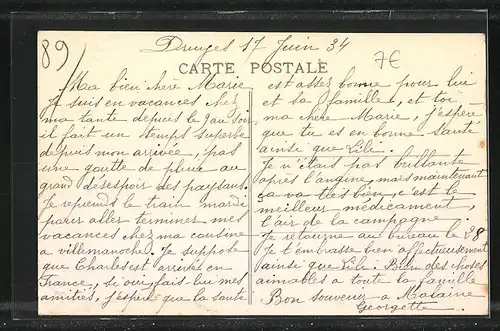 89
Druyes 17 Juin 34
7€
CARTE POSTALE
Ma bien chère Marie
Je suis en vacances chez
ma tante depuis le 9 au soir
il fait un temps superbe
depuis mon arrivée, pas
une goutte de pluie au
grand désespoir des paysans.
Je reprends le train mardi
pour aller terminer mes
vacances chez ma cousine
a villemanoche. Je suppose
que Charles est arrivé en
France, si oui fais lui mes
amitiés, j'espère que ta santé
est assez bonne pour lui
et sa famille, et toi
ma chère Marie, j'espère
que tu es en bonne santé
ainsi que Lili.
Je n'étais pas brillante
après l'angine, mais maintenant
ça va très bien, c'est le
meilleur médicament,
l'air de la campagne.
Je retourne au bureau le 28
Je t'embrasse bien affectueusement
ainsi que Lili. Bien des choses
aimables a toute ta famille
Bon souvenir a
Georgette